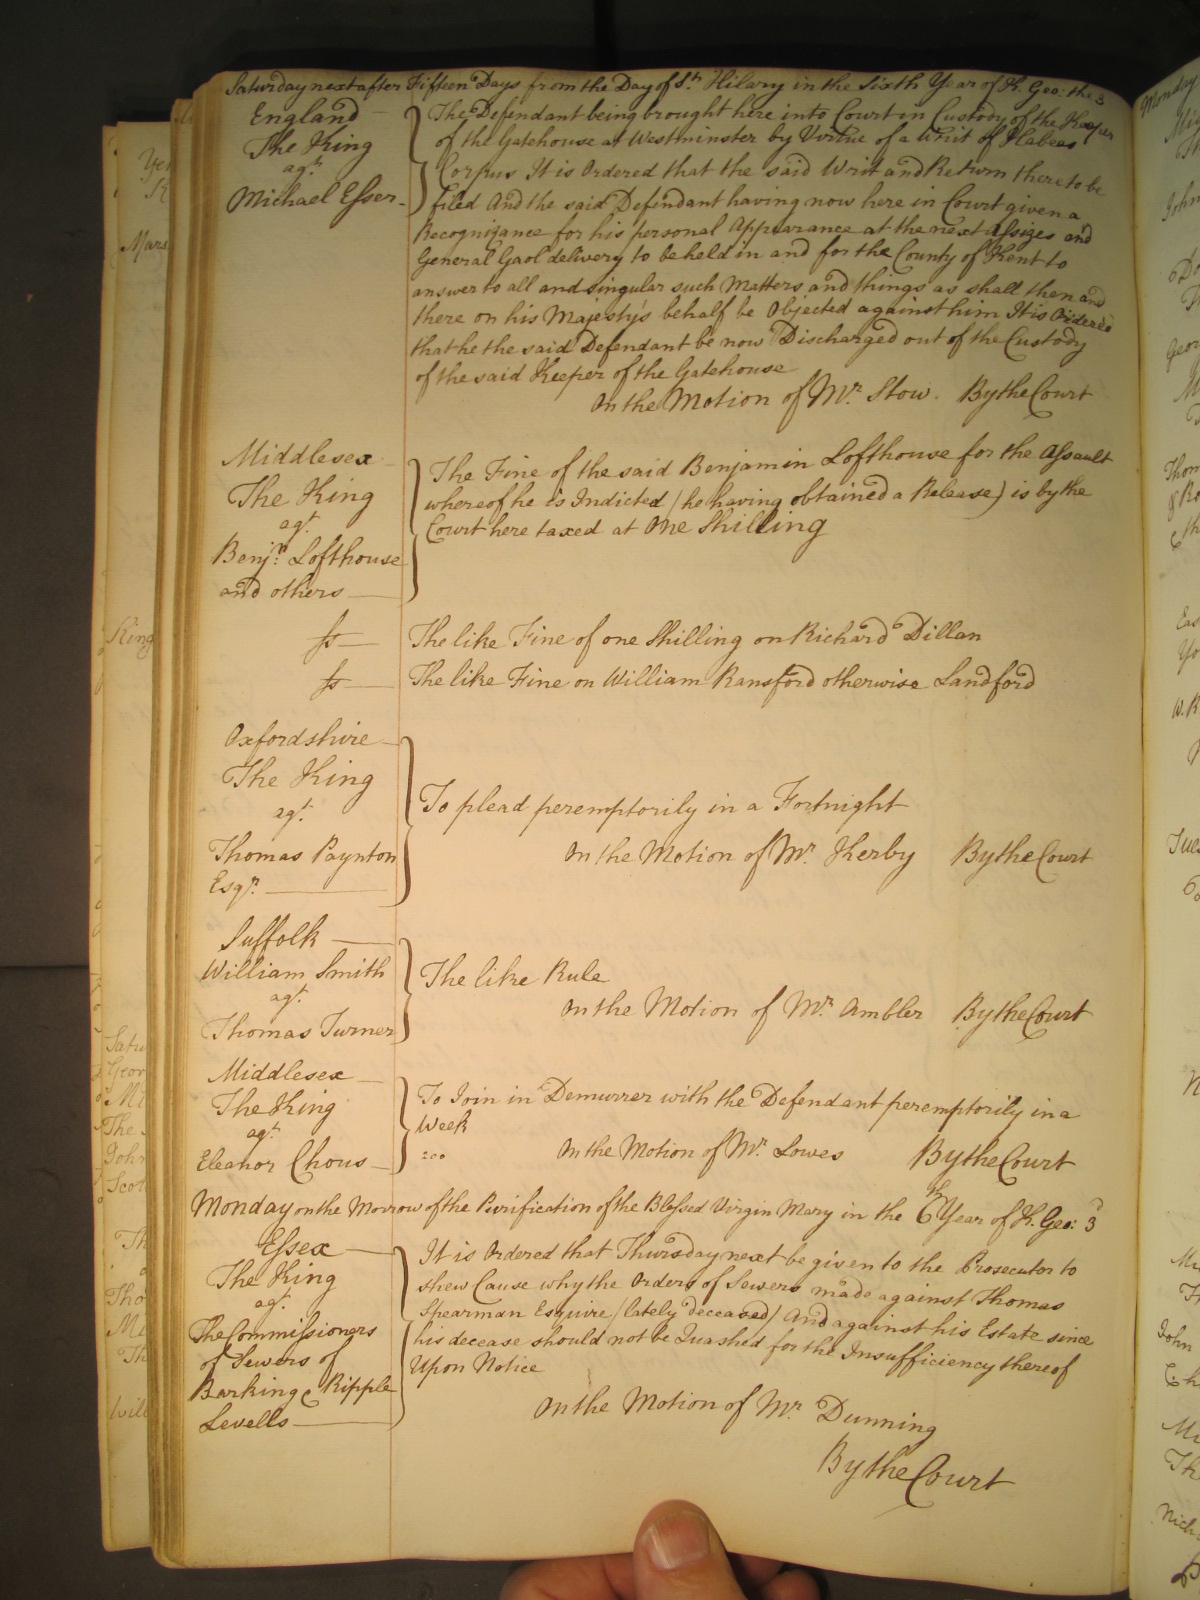 Saturday next after Fifteen Days from the Day of St. Hilary in the Sixth Year of K. Geo: the 3
England
The King
agt.
Michael Esser
The Defendant being brought here into Court in Custody of the Keeper
of the Gatehouse at Westminster by Virtue of a Writ of Habeas
Corpus It is Ordered that the said Writ and Return thereto be
filed And the said Defendant having now here in Court given a
Recognizance for his personal Appearance at the next Assizes and
General Gaol delivery to be held in and for the County of Kent to
answer to all and singular such Matters and things as shall then and
there on his Majesty's behalf be Objected against him It is Ordered
that he the said Defendant be now Discharged out of the Custody
of the said Keeper of the Gatehouse
On the Motion of Mr. Stow. By the Court
Middlesex
The King
agt.
Benjn. Lofthouse
and others
The Fine of the said Benjamin Lofthouse for the Assault
whereof he is Indicted (he having obtained a Release) is by the
Court here taxed at One Shilling
ss The like Fine of one Shilling on Richard Dillan
ss The like Fine on William Ransford otherwise Landford
Oxfordshire
The King
agt.
Thomas Paynton
Esqr.
To plead peremptorily in a Fortnight
On the Motion of Mr. Kerby By the Court
Suffolk
William Smith
agt.
Thomas Turner
The like Rule
On the Motion of Mr. Ambler By the Court
Middlesex
The King
agt.
Eleanor Chous
To Join in Demurrer with the Defendant peremptorily in a
Week
On the Motion of Mr. Lowes By the Court
Monday on the Morrow of the Purification of the Blessed Virgin Mary in the 6th Year of K. Geo: 3d
Essex
The King
agt.
The Commissioners
of Sewers of
Barking & Ripple
Levells
It is Ordered that Thursday next be given to the Prosecutor to
shew Cause why the Orders of Sewers made against Thomas
Spearman Esquire (lately deceased) And against his Estate since
his decease should not be Quashed for the Insufficiency thereof
Upon Notice
On the Motion of Mr. Dunning
By the Court